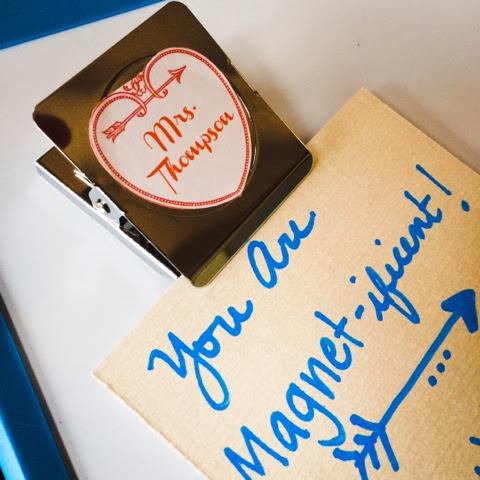 Mrs.
Thompson
You Are
Magnet-ificent!